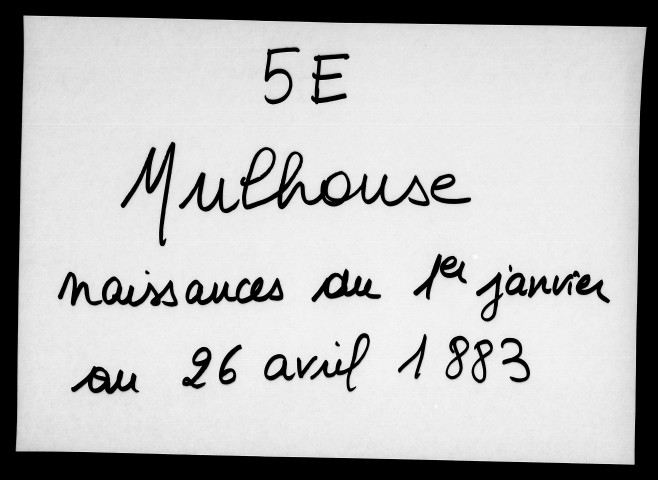 5E
Mulhouse
naissances du 1er janvier
au 26 avril 1883